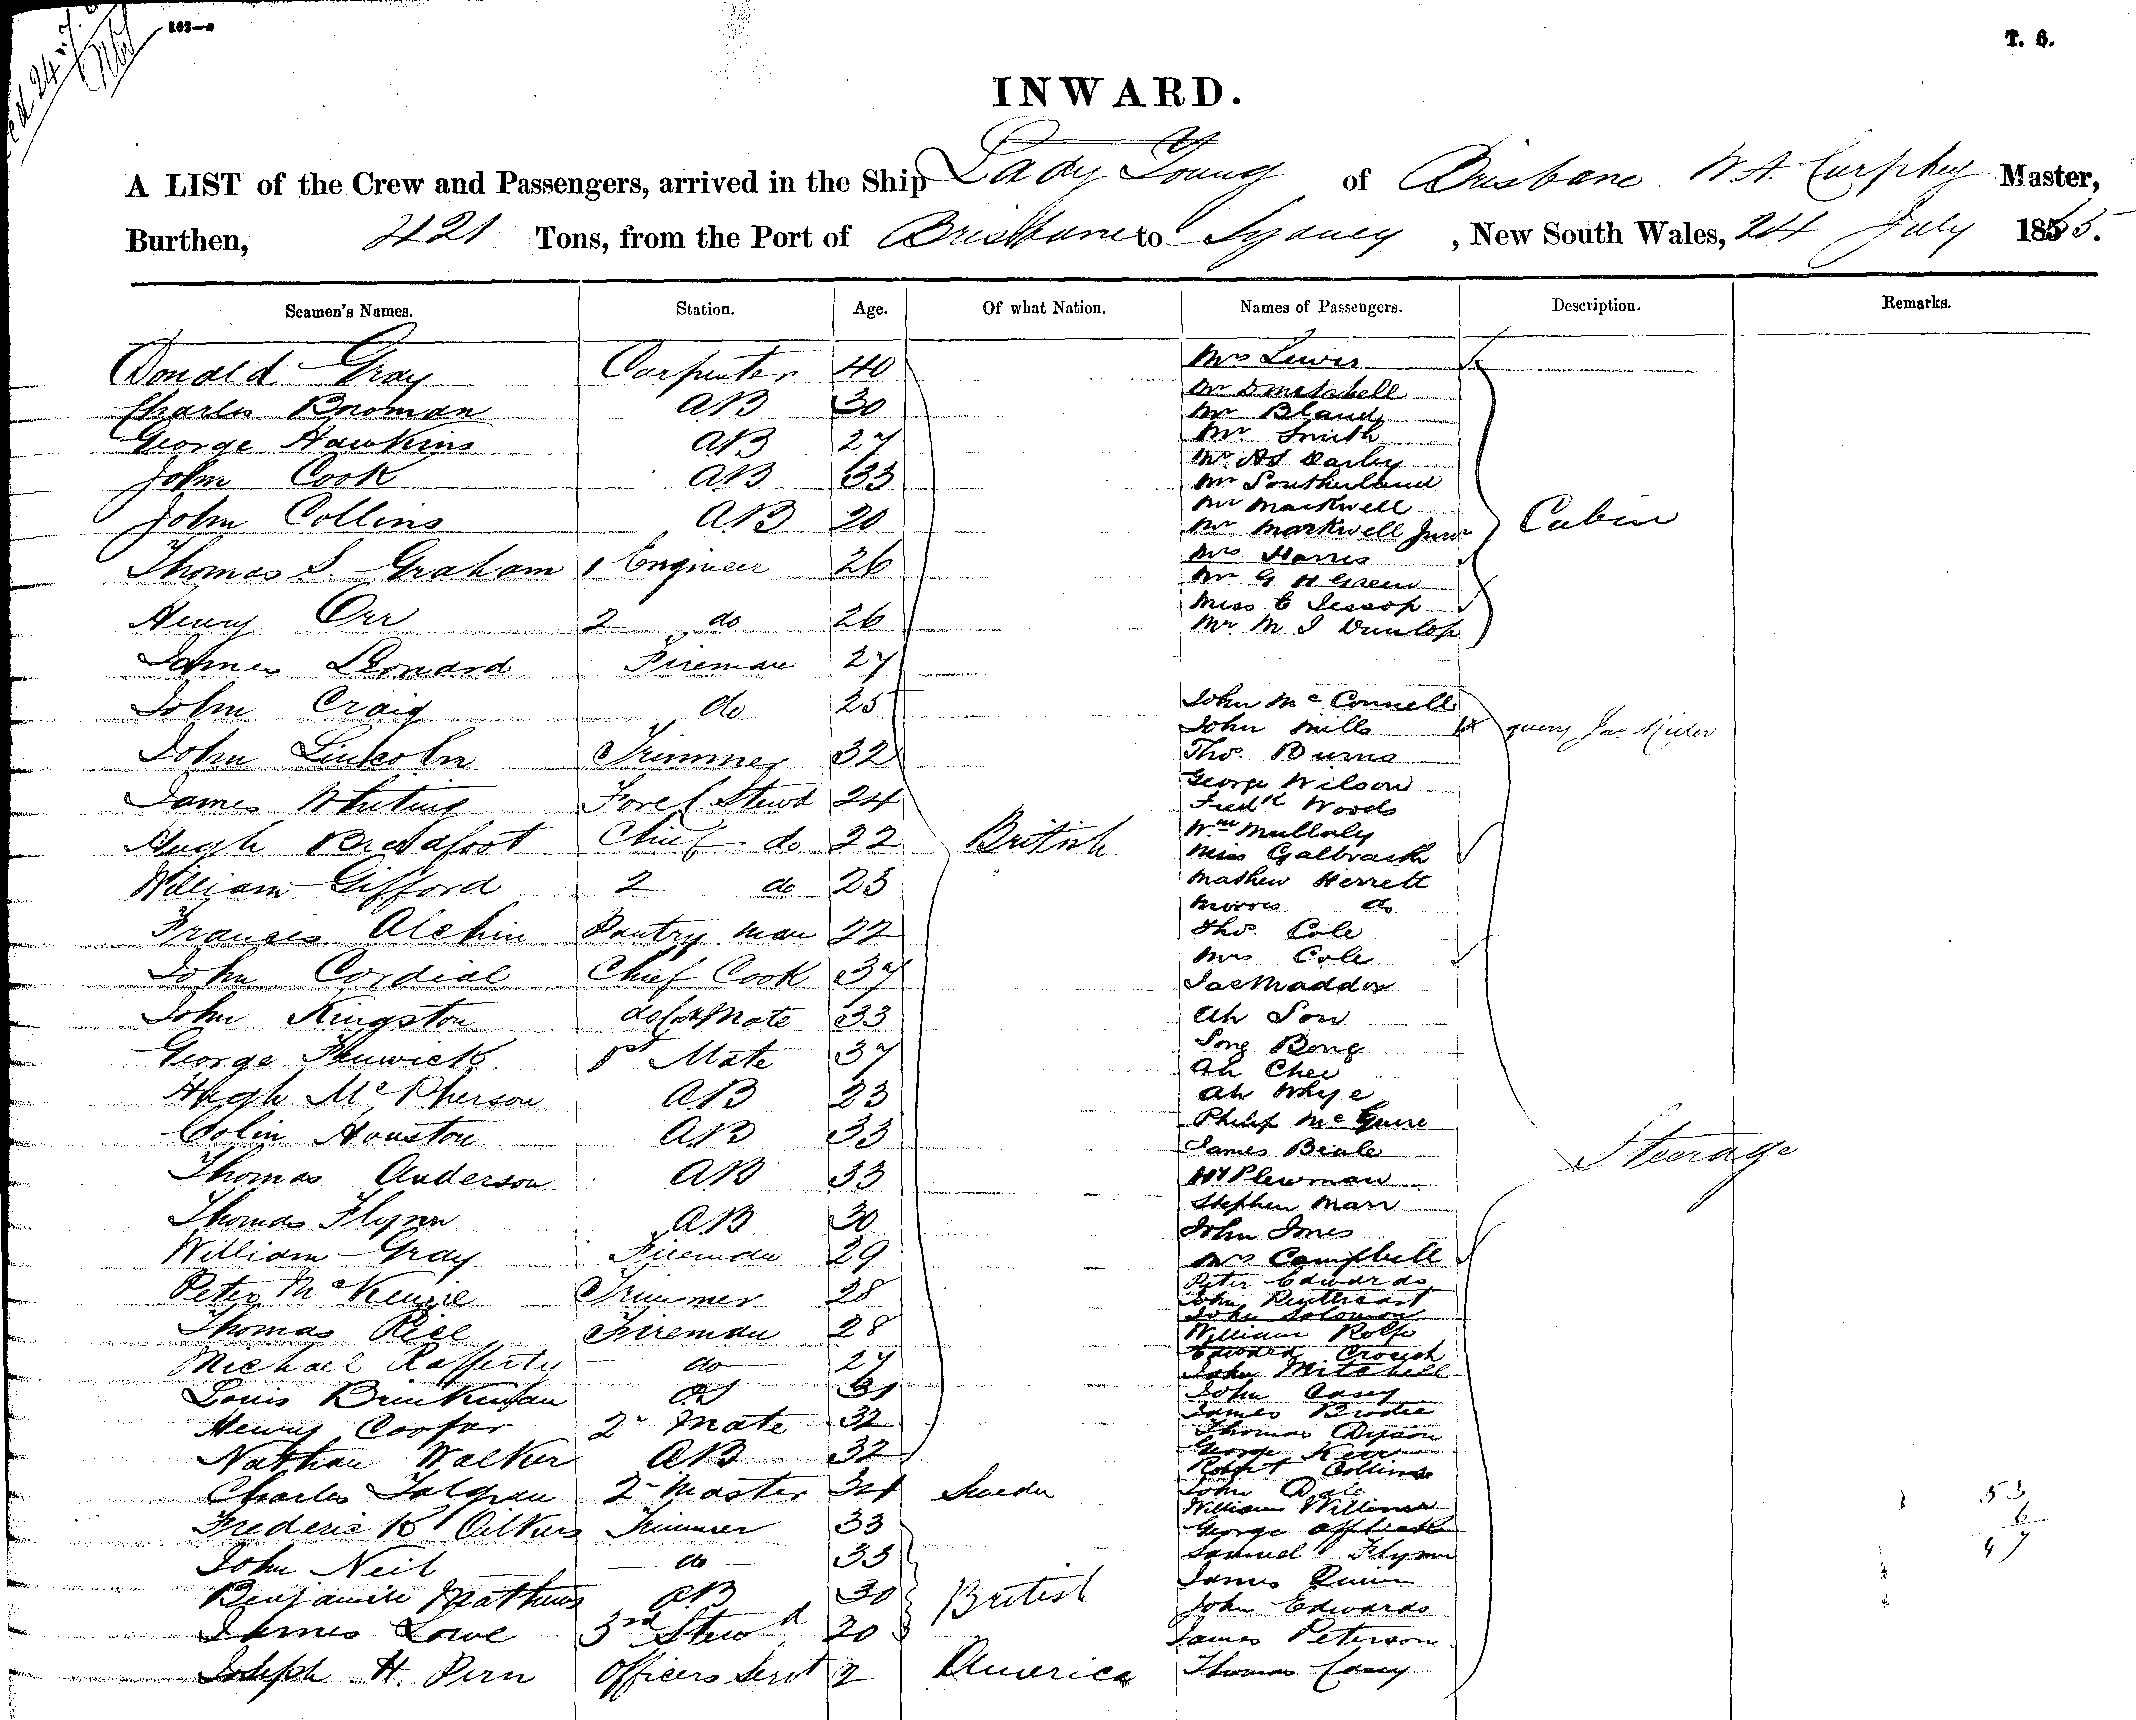 103—a
T. S.
INWARD.
A LIST of the Crew and Passengers, arrived in the Ship Lady Young of Brisbane W A Curphey Master,
Burthen, 421 Tons, from the Port of Brisbane to Sydney, New South Wales, 24 July 1865.
Seamen's Names. Station. Age. Of what Nation. Names of Passengers. Description. Remarks.
Donald Gray Carpenter 40 Mrs Lewis
Mr D Mitchell
Charles Bowman AB 30 Mr Bland
George Hawkins AB 27 Mr Smith
Mr Darley
John Cook AB 33 Mr Southerland
Mr Markwell
John Collins AB 20 Mr Markwell Junr Cabin
Mrs Harris
Thomas S. Graham 1 Engineer 26 Mr G H Green
Miss C Jessop
Henry Orr 2 do 26 Mr M J Dunlop
James Leonard Fireman 27
John Craig do 25 John McConnell
John Mills query Jas
John Lincoln Trimmer 32 Thos. Burns
George Wilson
James Whiting Stewd 24 Fredk Woods
Wm Mullaly
Hugh Chief do 22 British Miss Galbraith
William Gifford 2 do 23 Mathew Herrett
Morris do
Francis Alchin Pantry man 22 Thos. Cole
Mrs Cole
John Cordial Chief Cook 37 Jas Maddox
John Kingston Mate 33 Ah Son
George Fenwick 1st Mate 37 Song Bong
Ah Chee
Hugh McPherson AB 23 Ah Whye
Philip McGuire
Colin Houston AB 33 James Beale
Thomas Anderson AB 33 Wm Plewman Steerage
Stephen Marr
Thomas Flynn AB 30 John Jones
William Gray Fireman 29 Mrs Campbell
Peter McKenzie Trimmer 28 Peter Edwards
John
John Solomon
Thomas Rice Fireman 28 William Rolfe
Michael Rafferty do 27 Edward Crouch
John Mitchell
Louis Brinkman John Casey
Henry Cooper 2 Mate 32 James Brodie
Thomas Dyson
Nathan Walker AB 32 George
Robert Collins
Charles 2 Master 34 Sweden John Dale
William
Frederick Trimmer 33 George
John Neil do 35 Samuel Flynn
James Quinn
Benjamin Mathews AB 30 British John Edwards
James Lowe 3rd Stewd 20 James Peterson
Joseph H. Pirn Officers Servt 2 America Thomas Casey
53
6
47